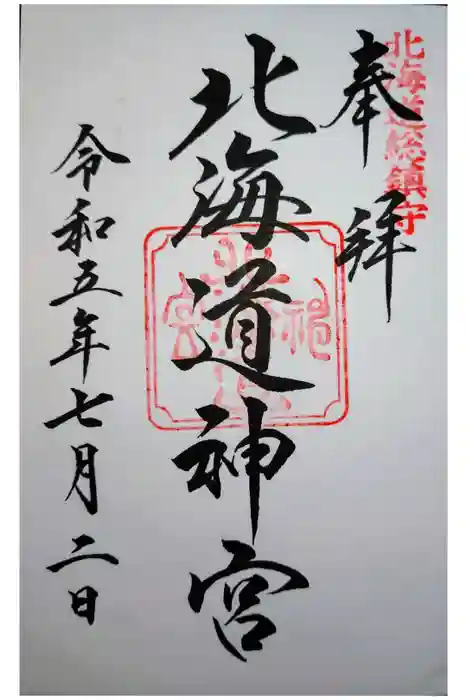 北海道総鎮守
奉拝
北海道神宮
令和五年七月二日